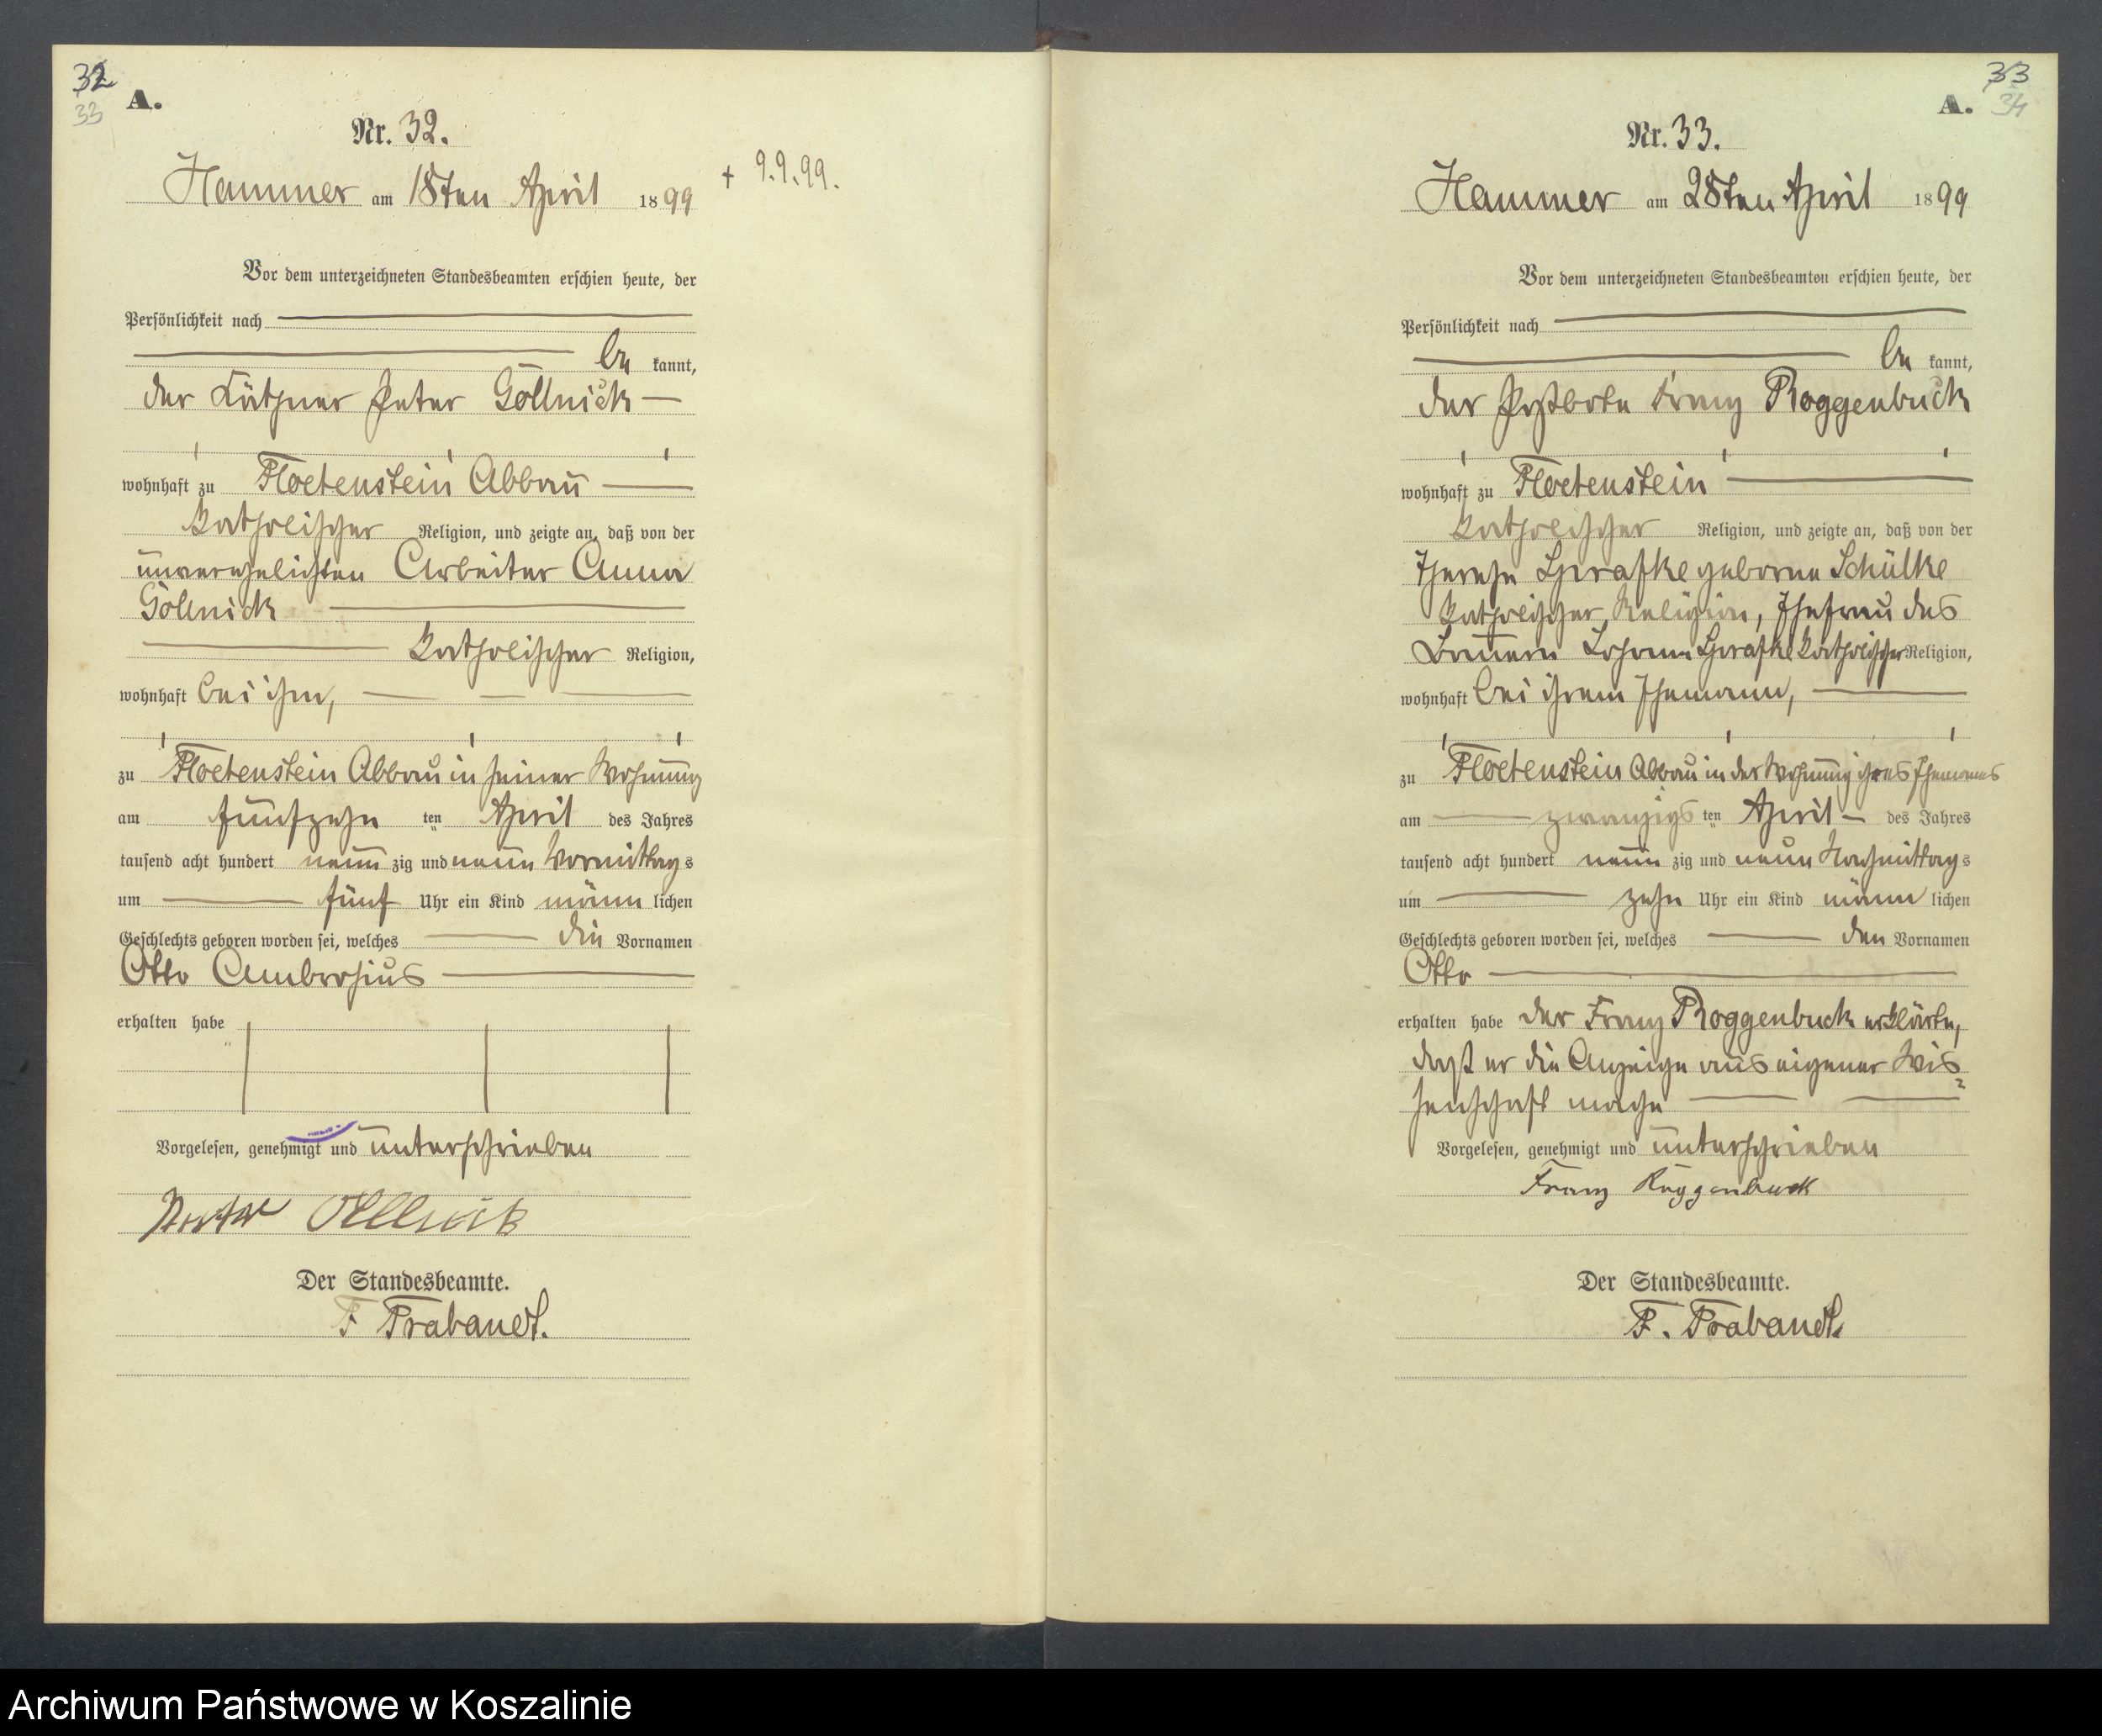 32
33
A.
Nr. 32.
Hammer am 18ten April 1899
+ 9.9.99.
Vor dem unterzeichneten Standesbeamten erschien heute, der
Persönlichkeit nach
be kannt,
der Käthner Peter Gollnick
wohnhaft zu Floetenstein Abbau
katholischer Religion, und zeigte an, daß von der
unverehelichten Arbeiter Anna
Gollnick
katholischer Religion,
wohnhaft bei ihm,
zu Floetenstein Abbau in seiner Wohnung
am fünfzehn ten April des Jahres
tausend acht hundert neun zig und neun Vormittag s
um fünf Uhr ein Kind männ lichen
Geschlechts geboren worden sei, welches die Vornamen
Otto Ambrosius
erhalten habe
Vorgelesen, genehmigt und unterschrieben
Der Standesbeamte.
F Trabandt.
33
34
A.
Nr. 33.
Hammer am 28ten April 1899
Vor dem unterzeichneten Standesbeamten erschien heute, der
Persönlichkeit nach
be kannt,
der Postbote Franz Roggenbuck
wohnhaft zu Floetenstein
katholischer Religion, und zeigte an, daß von der
geborne Schülke
katholischer Religion, Ehefrau des
Johann katholischer Religion,
wohnhaft bei ihrem Ehemann,
zu Floetenstein Abbau in der Wohnung ihres Ehemannes
am zwanzigs ten April des Jahres
tausend acht hundert neun zig und neun Nachmittag s
um zehn Uhr ein Kind männ lichen
Geschlechts geboren worden sei, welches den Vornamen
Otto
erhalten habe der Franz Roggenbuck erklärte,
daß er die Anzeige aus eigener Wis
senschaft mache
Vorgelesen, genehmigt und unterschrieben
Franz Roggenbuck
Der Standesbeamte.
F. Trabandt.
Archiwum Państwowe w Koszalinie